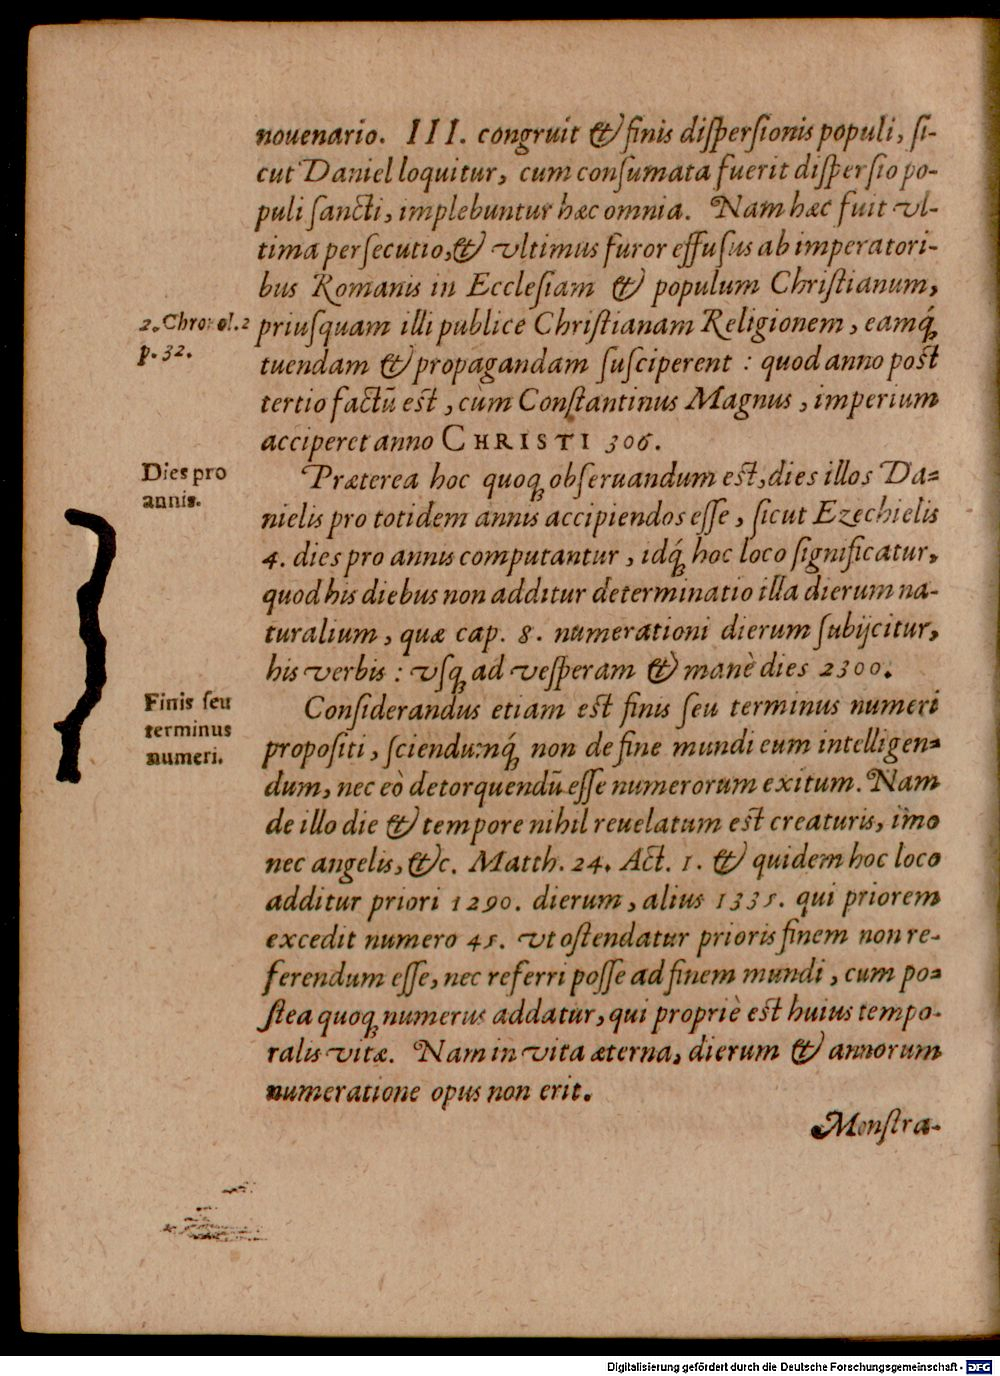 nouenario. III. congruit & finis diſperſionis populi, ſi-
cut Daniel loquitur, cum conſumata fuerit diſperſio po-
puli ſancti, implebuntur hæc omnia. Nam hæc fuit vl-
tima perſecutio, & vltimus furor effuſus ab imperatori-
bus Romanis in Eccleſiam & populum Chriſtianum,
2. Chronol. 2
p. 32.
priuſquam illi publice Chriſtianam Religionem, eamq́;
tuendam & propagandam ſuſciperent : quod anno poſt
tertio factũ eſt, cùm Conſtantinus Magnus, imperium
acciperet anno CHRISTI 306.
Dies pro
annis.
Præterea hoc quoq; obſeruandum eſt, dies illos Da-
nielis pro totidem annis accipiendos eſſe, ſicut Ezechielis
4. dies pro annis computantur, idq́; hoc loco ſignificatur,
quod his diebus non additur determinatio illa dierum na-
turalium, quæ cap. 8. numerationi dierum ſubijcitur,
his verbis : vſq; ad veſperam & manè dies 2300.
Finis ſeu
terminus
numeri.
Conſiderandus etiam eſt finis ſeu terminus numeri
propoſiti, ſciendumq́; non de fine mundi eum intelligen-
dum, nec eò detorquendũ eſſe numerorum exitum. Nam
de illo die & tempore nihil reuelatum eſt creaturis, imo
nec angelis, &c. Matth. 24. Act. 1. & quidem hoc loco
additur priori 1290. dierum, alius 1335. qui priorem
excedit numero 45. vt oſtendatur prioris finem non re-
ferendum eſſe, nec referri poſſe ad finem mundi, cum po-
ſtea quoq; numerus addatur, qui propriè eſt huius tempo-
ralis vitæ. Nam in vita æterna, dierum & annorum
numeratione opus non erit.
Monſtra-
Digitalisierung gefördert durch die Deutsche Forschungsgemeinschaft - DFG